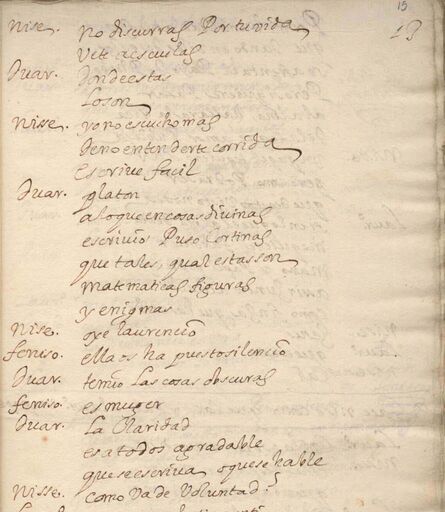 15
13
Nise. no discurras Por tu vida
Vete a escuelas
Duar. Donde estas
Lo son
Nisse. yo no escucho mas
De no entenderte corrida
escrive facil
Duar. platon
a lo que en cosas divinas
escrivio Puso Cortinas
que tales, qual estas son
matematicas figuras
y enigmas
Nise. oye laurencio
feniso. ella os ha puesto silencio
Duar. temio Las cosas obscuras
feniso es muger
Duar. La Claridad
es a todos agradable
que se escriva o que se hable
Nisse. como Va de Voluntad?